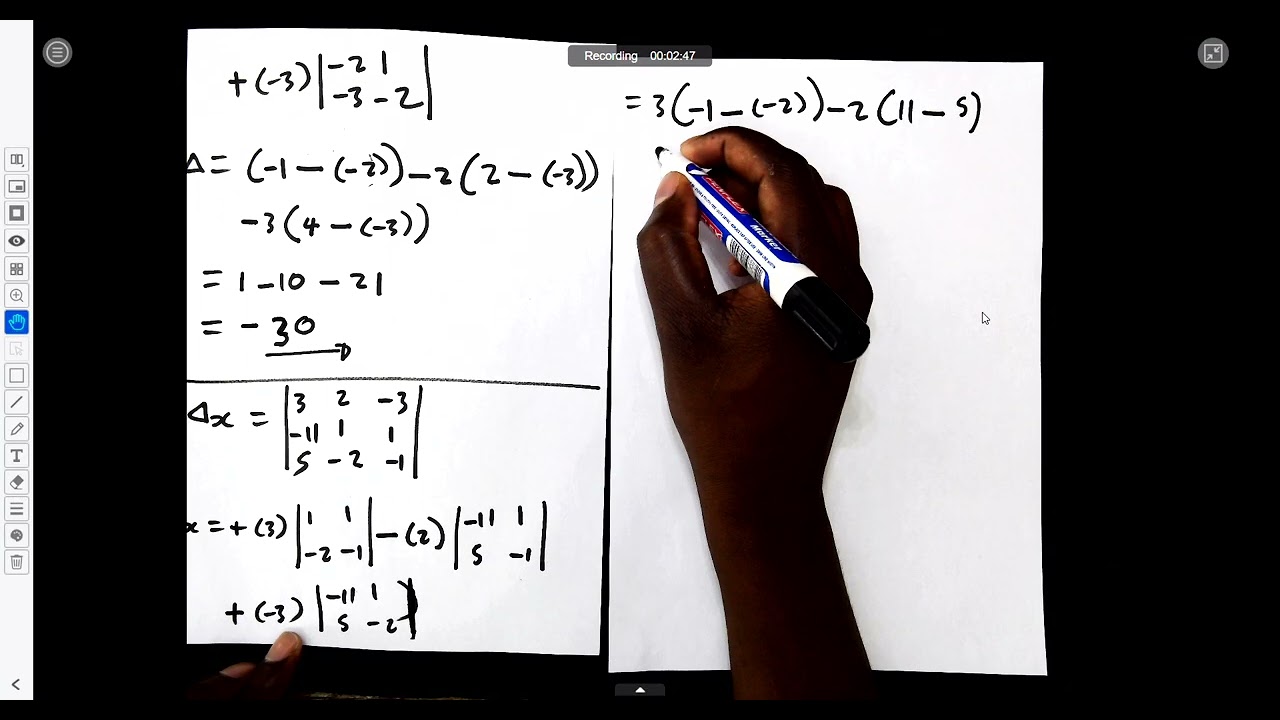 Recording 00:02:47
+ (-3) | -2 1 |
| -3 -2 |
Δ = (-1 - (-2)) - 2 (2 - (-3))
-3 (4 - (-3))
= 1 - 10 - 21
= - 30
Δx = | 3 2 -3 |
| -11 1 1 |
| 5 -2 -1 |
x = + (3) | 1 1 | - (2) | -11 1 |
| -2 -1 | | 5 -1 |
+ (-3) | -11 1 |
| 5 -2 |
= 3 (-1 - (-2)) - 2 (11 - 5)
Marker